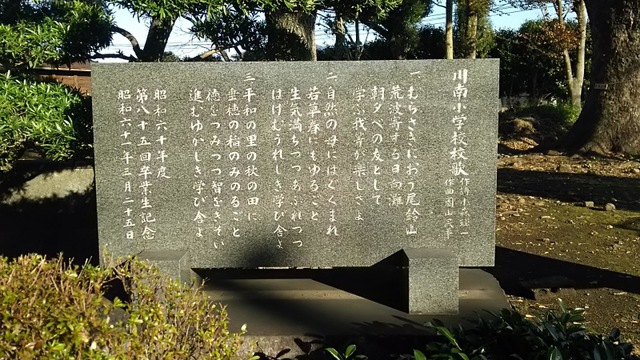 川南小学校校歌
一 むらさきにおう尾鈴山
荒波寄する日向灘
朝夕べの友として
学ぶ我等が楽しさよ
二 自然の母にはぐくまれ
若草春にもゆるごと
生気満ちつつあふれつつ
はげむうれしき学び舎よ
三 平和の里の秋の田に
垂穂の稲のみのるごと
徳をつみつつ智をきそい
進むゆかしき学び舎よ
昭和六十年度
第八十五回卒業生記念
昭和六十一年三月二十五日